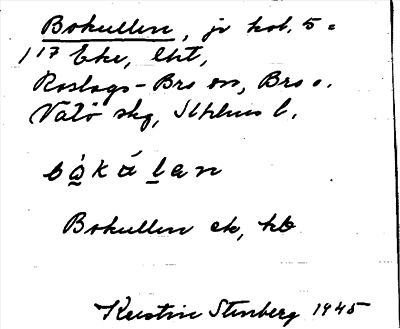 Bokullen, jr kol. 5 o
117 Eke, Lht,
Roslags-Bro sn, Bro o.
Vätö skg, Sthlms l.
bòkálan
Bokullen ek, kb
Kerstin Stenberg 1945